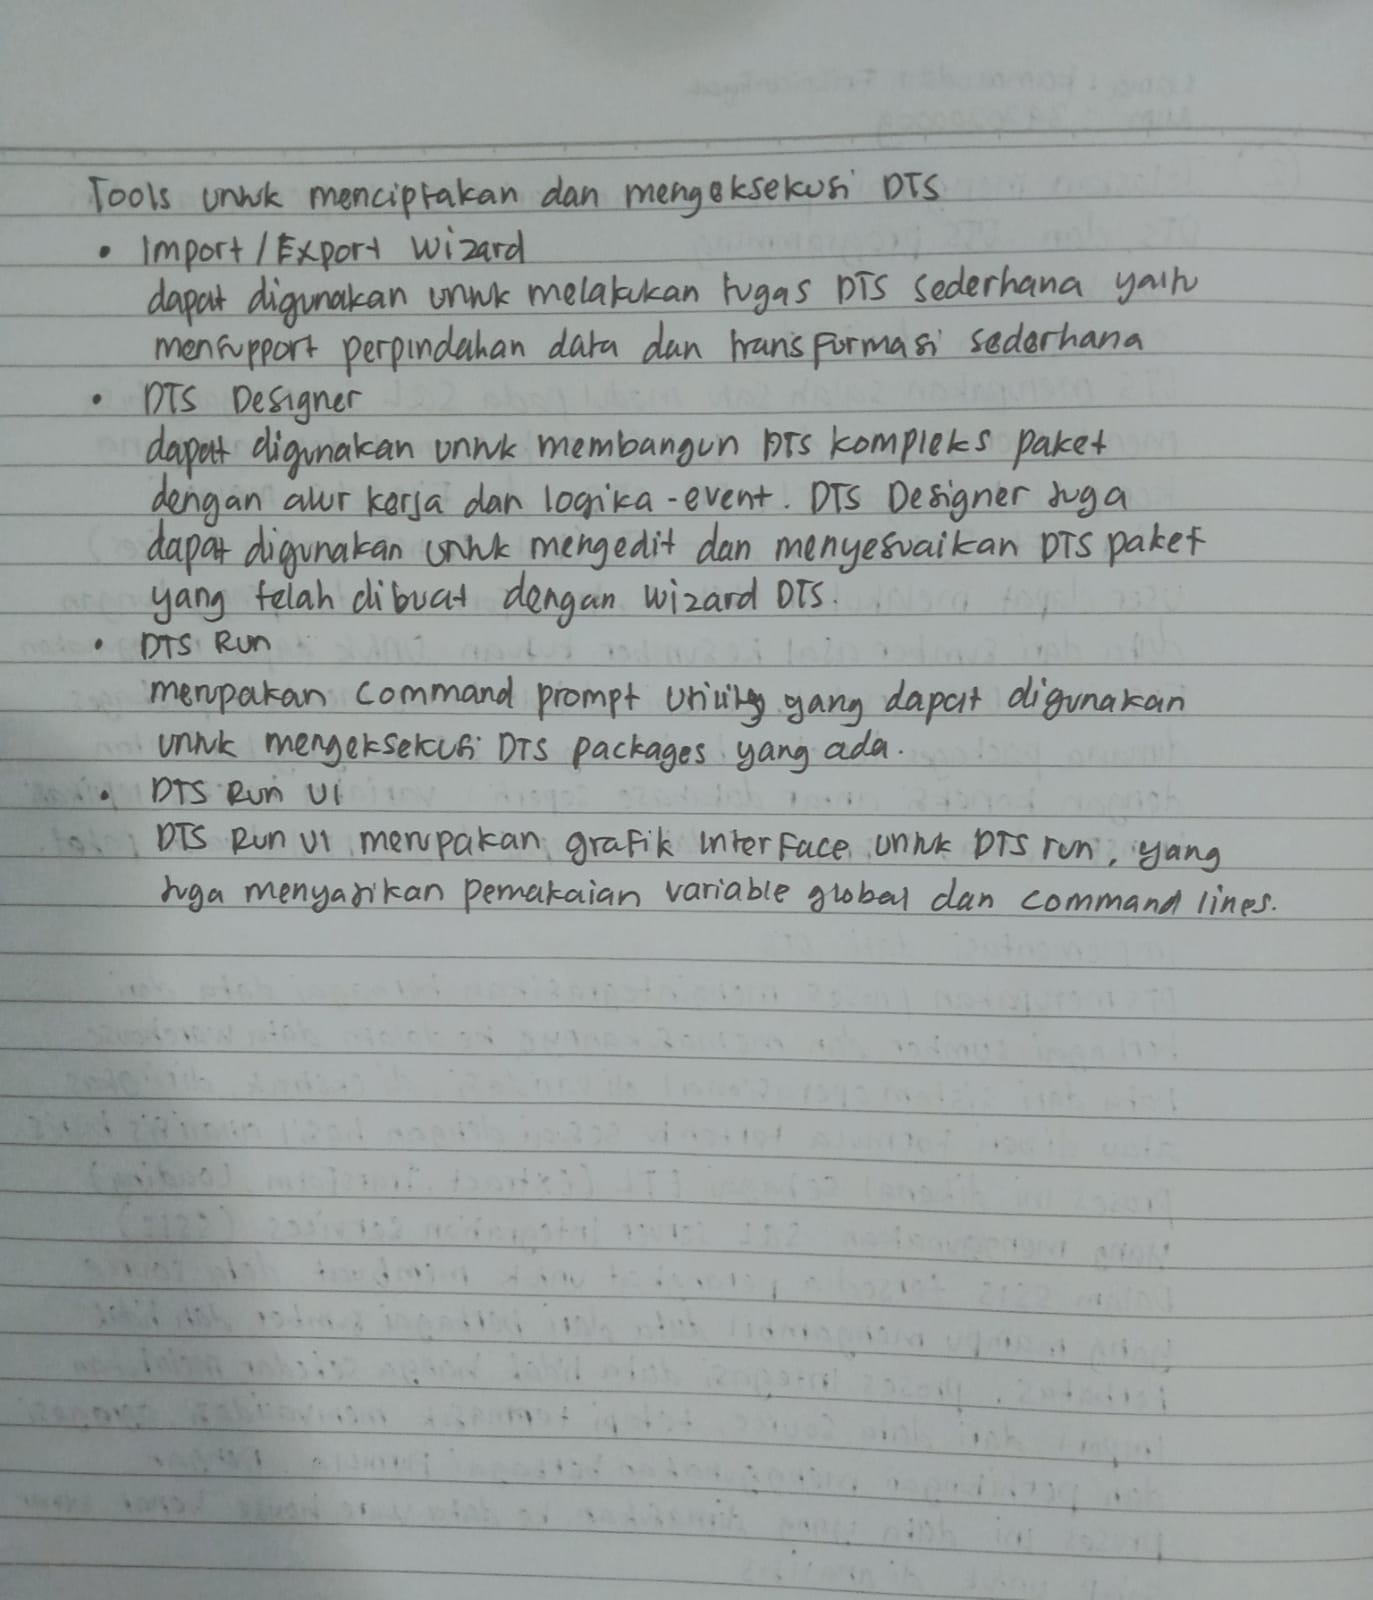 Tools untuk menciptakan dan mengeksekusi DTS
• Import/Export Wizard
dapat digunakan untuk melakukan tugas DTS sederhana yaitu
mensupport perpindahan data dan transformasi sederhana
• DTS Designer
dapat digunakan untuk membangun DTS kompleks paket
dengan alur kerja dan logika-event. DTS Designer juga
dapat digunakan untuk mengedit dan menyesuaikan DTS paket
yang telah dibuat dengan wizard DTS.
• DTS Run
merupakan command prompt utility yang dapat digunakan
untuk mengeksekusi DTS packages yang ada.
• DTS Run UI
DTS Run UI merupakan grafik interface untuk DTS run, yang
juga menyajikan pemakaian variable global dan command lines.